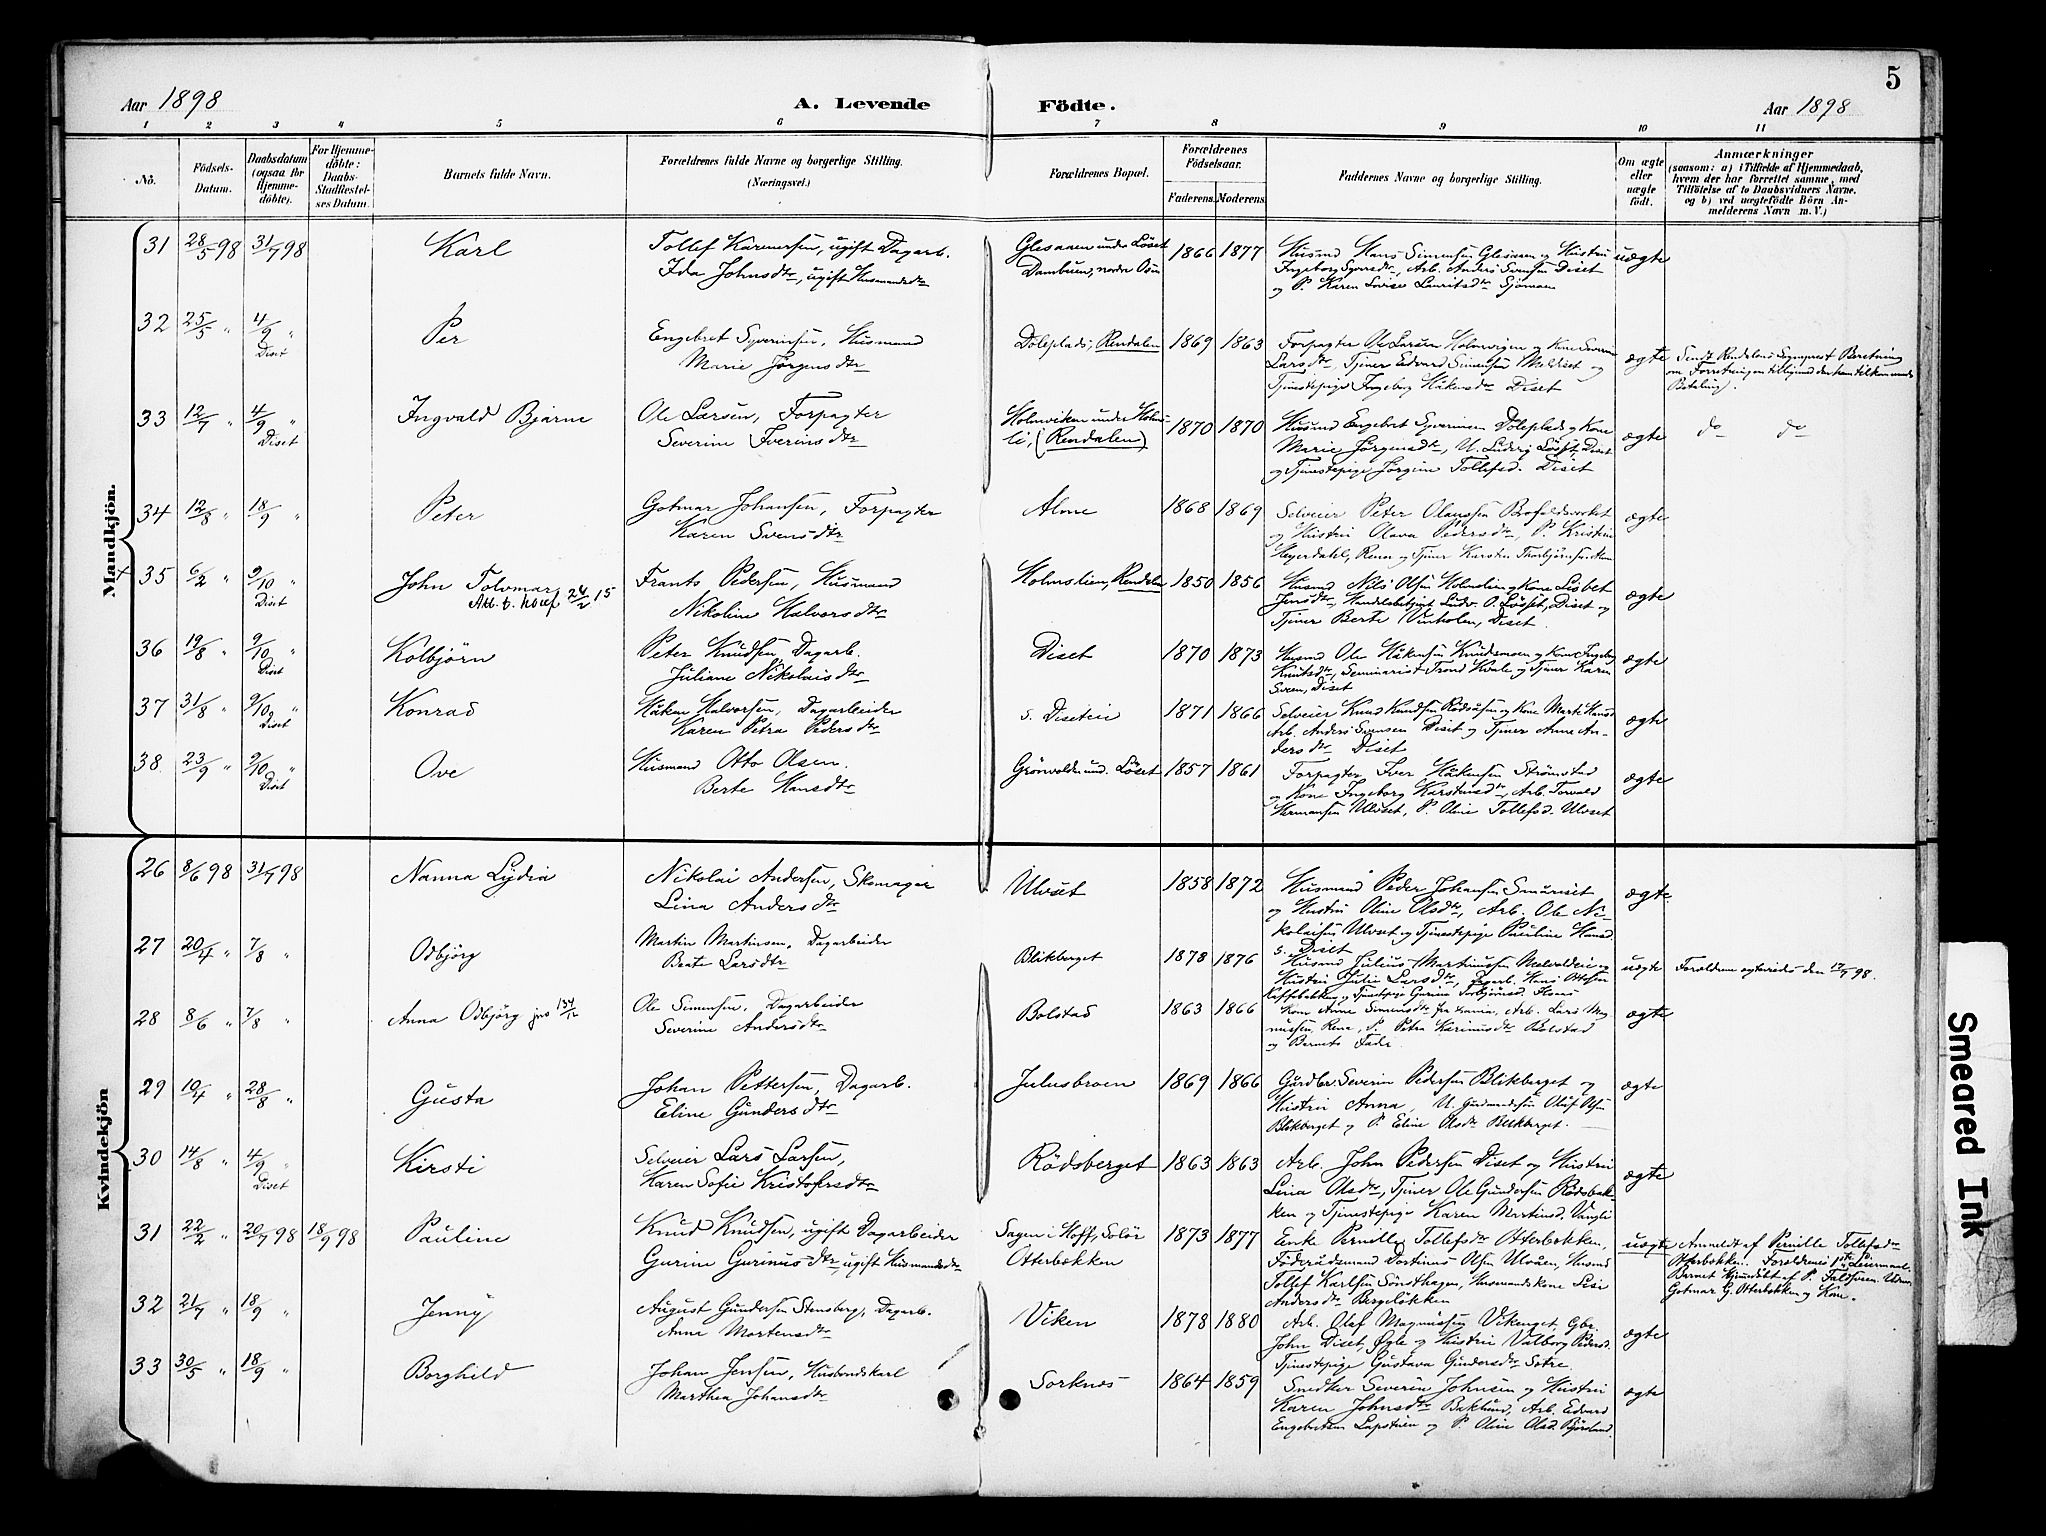 5
Aar 1898
A. Levende
Födte.
Aar 1898
1 2 3 4 5 6 7 8 9 10 11
No.
Födsels-
Datum.
Daabsdatum
(ogsaa for
Hjemme-
döbte).
For Hjemme-
döbte:
Daabs-
Stadfæstel-
ses Datum.
Barnets fulde Navn.
Forældrenes fulde Navne og borgerlige Stilling.
(Næringsvei.)
Forældrenes Bopæl.
Forældrenes
Födselsaar.
Faderens. Moderens.
Faddernes Navne og borgerlige Stilling.
Om ægte
eller
uægte
födt.
Anmærkninger
(saasom: a) i Tilfælde af Hjemmedaab,
hvem der har forrettet samme, med
Tilföielse af to Daabsvidners Navne.
og b) ved uægtefödte Börn An-
melderens Navn m. V.)
Mandkjön.
31 28/5 98 31/7 98 Karl
Tollef Karenersen, ugift Dagarb.
Ida Johnsdtr, ugift Husmandsdtr
Glesaaen under Löset
Dambuen, nordre Osen
1866 1877
Husmd Hans Simensen Glesaaen og Hustru
Ingeborg Syversdtr, Arb. Anders Svensen Diset
og P. Karen Lovise Lauritsdtr Sjömoen
uægte
32 25/5 " 4/9 " Diset Per
Engebret Syverinsen, Husmand
Marie Jörgensdtr
Doleplads, Rendalen
1869 1863
Forpagter Ole Larsen Holmvigen og Kone Severine
Larsdtr, Tjener Edvard Simensen Diset og
Tjenestepige Ingeborg Håkensdtr Diset
ægte
Sendt Rendalens Sogneprest Beretning
om Forretningen tilligemed den ham tilkommende
Betaling.
33 12/7 " 4/9 " Diset Ingvald Bjarne
Ole Larsen, Forpagter
Severine Iverinsdtr
Holmviken under Holm-
li, (Rendalen)
1870 1870
Husmd Engebret Syverinsen Doleplads og Kone
Marie Jörgensdtr, U. Ludvig Löset, Diset
og Tjenestepige Jörgine Tollefsd. Diset
ægte
do do
34 12/8 " 18/9 " Peter
Gotmar Johansen, Forpagter
Karen Svensdtr
Alme
1868 1869
Selveier Peter Olaussen
og Hustru Olava Pedersdtr, P. Kristine
Heyerdahl, Rena og Tjener Karsten Thorbjörnsen Alme
ægte
35 6/2 " 9/10 " Diset John Tolvmar
Att. t. 24/2 15
Frants Pedersen, Husmand
Nikoline Halvorsdtr
Holmslien, Rendalen
1850 1856
Husmd Nils Olsen Holmslien og Kone Lisbet
Jensdtr, Handelsbetjent Ludv. O. Lösset, Diset og
Tjener Berte Diset
ægte
36 19/8 " 9/10 " Diset Kolbjörn
Peter Knudsen, Dagarb.
Juliane Nikolaisdtr
Diset
1870 1873
Husmd Ole Håkensen Knudsmoen og Kone Ingeborg
Knutsdtr, Seminarist Trond Kvale og Tjener Karen
Sveen, Diset
ægte
37 31/8 " 9/10 " Diset Konrad
Håken Halvorsen, Dagarbeider
Karen Petra Pedersdtr
s. Diseteie
1871 1866
Selveier Knud Knudsen og Kone Marte Hansd
Arb. Anders Svensen Diset og Tjener Anne An-
dersdtr Diset
ægte
38 23/9 " 9/10 " Diset Ove
Husmand Otto Olsen.
Berte Hansdtr
Grönvolden und. Löset
1857 1861
Forpagter Iver Håkensen Strömstad
og Kone Ingeborg Karstensdtr, Arb. Torvald
Hermansen Ulvset, P. Oline Tollefsd. Ulvset
ægte
Kvindekjön
26 8/6 98 31/7 98 Nanna Lydia
Nikolai Andersen, Skomager
Lina Andersdtr
Ulvset
1858 1872
Husmand Peder Johansen Småriset
og Hustru Oline Olsdtr, Arb. Ole Ni-
kolaisen Ulvset og Tjenestepige Pauline Hansd.
s. Diset
ægte.
27 20/4 " 7/8 " Odbjörg
Martin Martinsen, Dagarbeider
Beate Larsdtr
Blikberget
1878 1876
Husmd Julius Martinussen og
Hustru Julie Larsdtr, Dagarb. Hans Ottesen
Kaffebakken og Tjenestepige Gurine Torbjörnsd.
uægte
Forældrene egteviedes den 17/7 98.
28 8/6 " 7/8 " Anna Odbjörg
Ole Simensen, Dagarbeider
Severine Andersdtr
Bolstad
1863 1866
Kone Anne Simensdtr, Arb. Lars Mag-
nussen, Rena, P. Petra Karinusdtr Bolstad
og Barnets Fader.
ægte
29 19/4 " 28/8 " Gusta
Johan Pettersen, Dagarb.
Eline Gundersdtr
Julusbroen
1869 1866
Gårdbr. Severin Pedersen Blikberget og
Hustru Anna, U. Gårdmandssön Oluf Olsen
Blikberget og P. Eline Olsdtr Blikberget.
ægte
30 14/8 " 4/9 " Diset Kirsti
Selveier Lars Larsen,
Karen Sofie Kristofersdtr
Rödsberget
1863 1863
Arb. John Pedersen Diset og Hustru
Lina Olsdtr, Tjener Ole Gundersen Rödsbak-
ken og Tjenestepige Karen Martinsd. Vangli
ægte
31 22/2 " 20/7 98 18/9 98 Pauline
Knud Knudsen, ugift Dagarbeider
Gurine Gurinusdtr, ugift Husmandsdtr
Sagen i Hoff, Solör
Otterbekken
1873 1877
Enke Pernille Tollefsdtr Otterbekken,
Föderådsmand Dortinus Olsen Ulvåen, Husmd
Tollef Karlsen Sörsthagen, Husmandskone Lisi
Andersdtr Bergelökken
uægte
Anmeldt af Pernille Tollefsdtr
Otterbekken. Forældrenes 1ste Leiermaal.
Barnet hjemdöbt af P.
Gotmar G. Otterbekken og Kone.
32 21/7 " 18/9 " Jenny
August Gundersen Stensberg, Dagarb.
Anne Mortensdtr
Viken
1878 1880
Arb. Olaf Magnussen Vikenget, Gbr.
John Diset, Øgle og Hustru Valborg Pedersd.
Tjenestepige Gustava Gundersdtr Sætre.
ægte
33 30/5 " 18/9 " Borghild
Johan Jensen, Husbondskarl
Marthea Johansdtr
Sorknes
1864 1859
Snedker Severin Johnsen og Hustru
Karen Johnsdtr Baklund, Arb. Edvard
Engebretsen Lapstuen og P. Oline Olsd. Björkland.
ægte
Smeared Ink